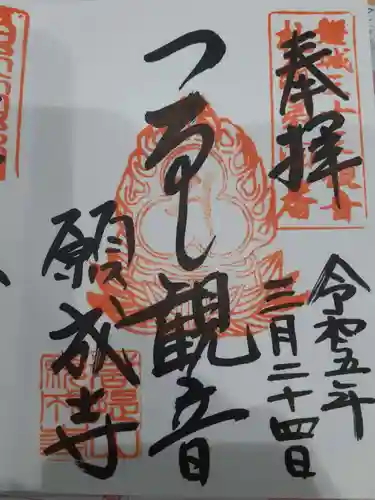 奉拝
令和五年
三月二十四日
つるし観音
願成寺